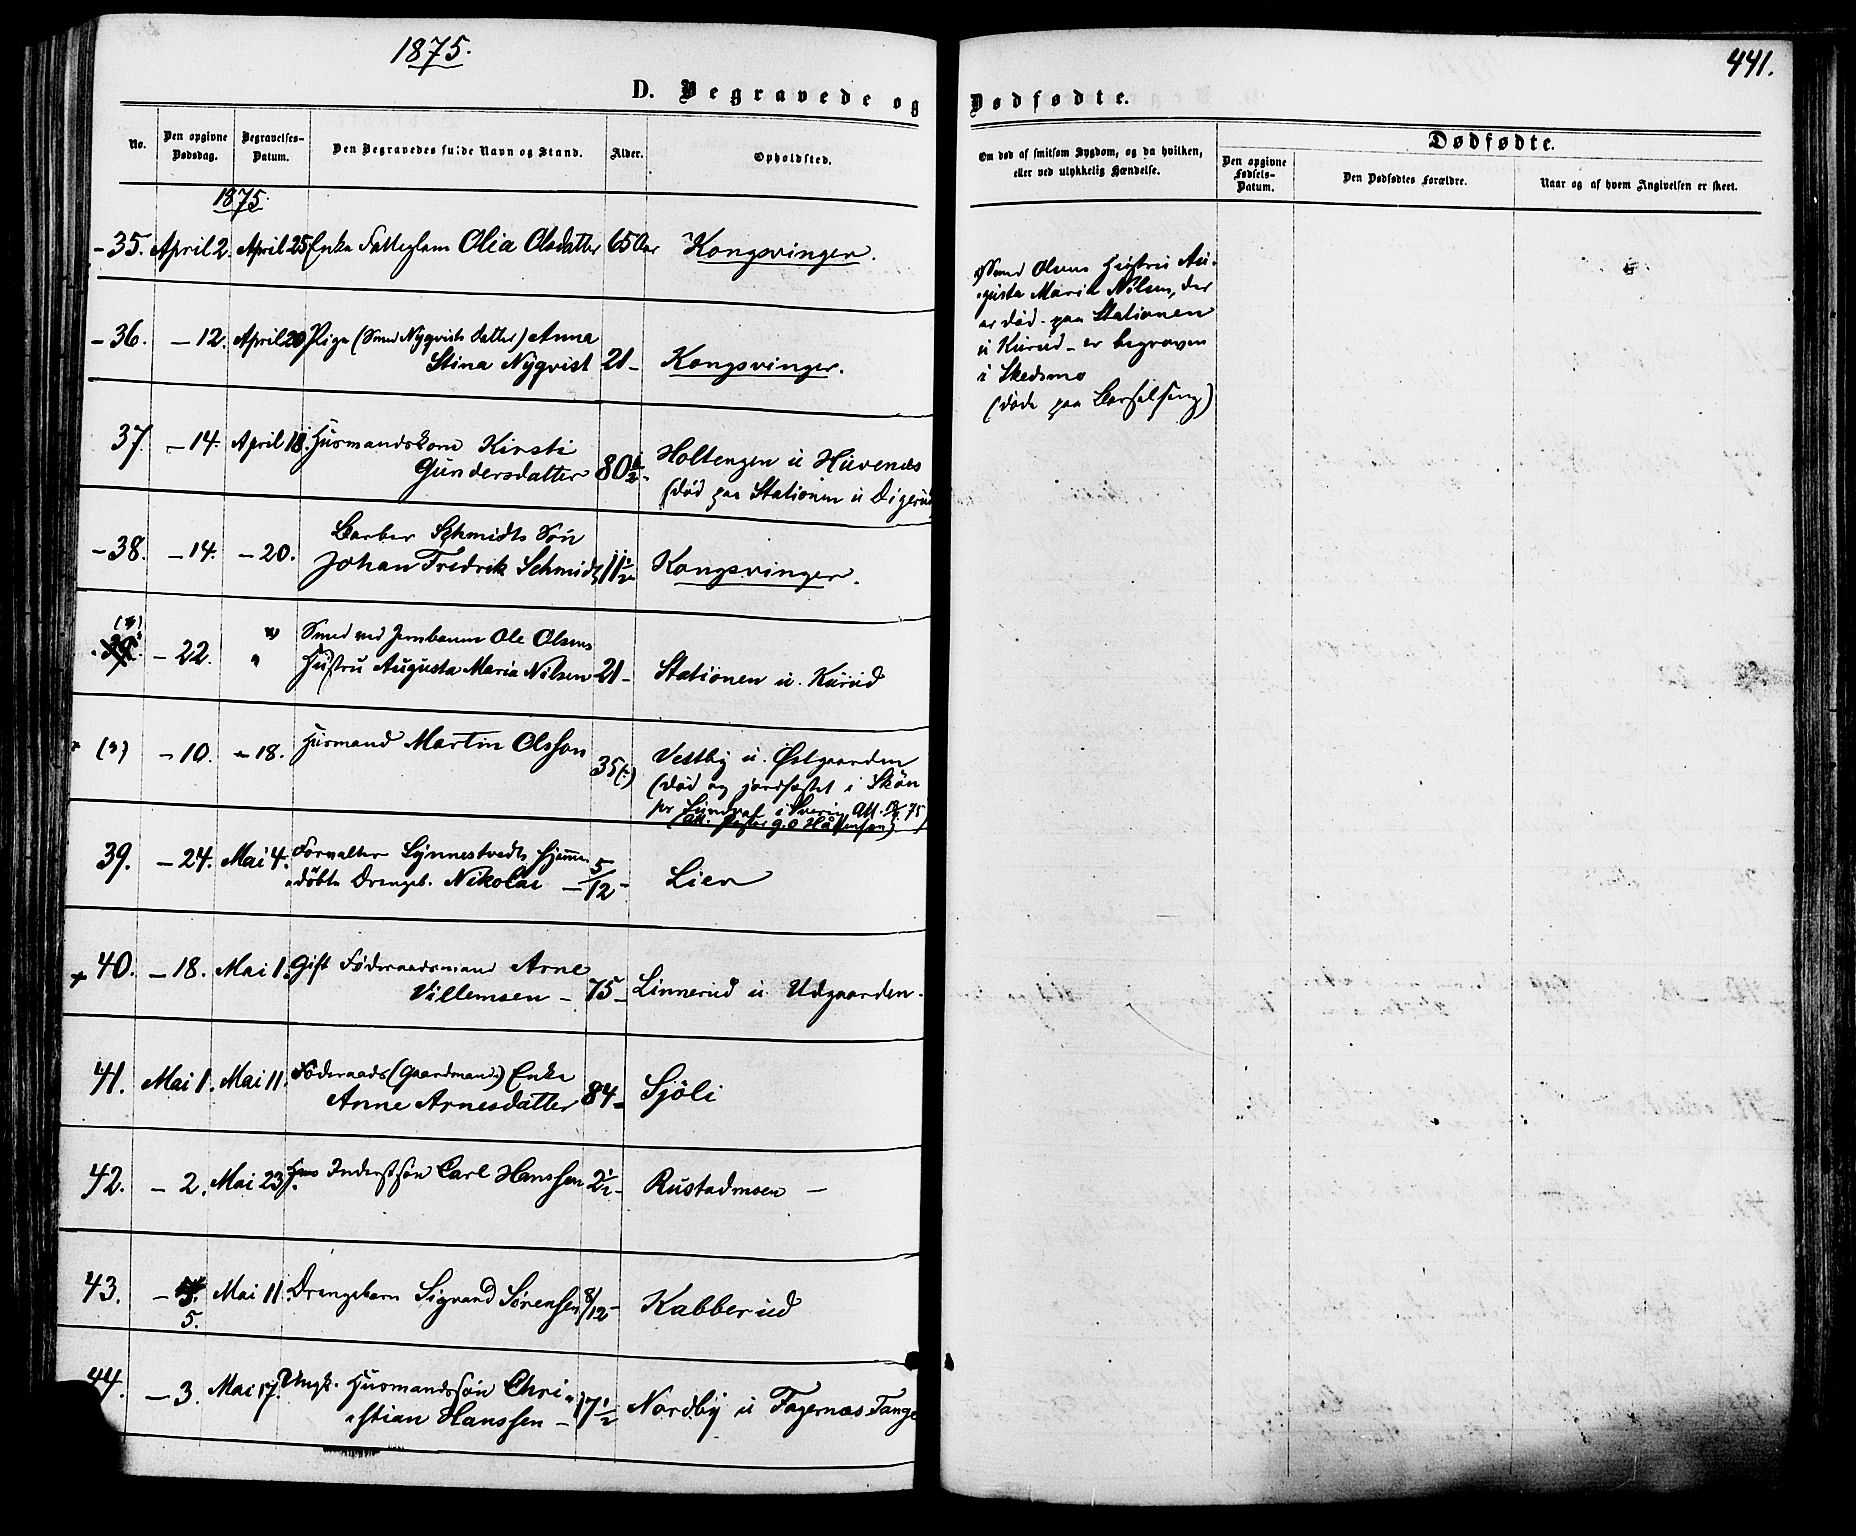 1875.
441.
D. Begravede og Dødfødte.
No.
Den opgivne Dødsdag.
Begravelses-Datum.
Den Begravedes fulde Navn og Stand.
Alder.
Opholdsted.
Om død af smitsom Sygdom, og da hvilken, eller ved ulykkelig Hændelse.
Dødfødte.
Den opgivne Fødsels-Datum.
Den Dødfødtes Forældre.
Naar og af hvem Angivelsen er skeet.
1875.
- 35. April 2. April 25 Enke Fatteglem Olia Olsdatter 65 Aar Kongsvinger.
- 36. - 12. April 20 Pige (Smed Nyqvists datter) Anna
Stina Nyqvist 21 - Kongsvinger.
37. - 14. April 18. Husmandskone Kirsti
Gundersdatter 80 1/2 - Holtengen u Huvenæs
(død paa Stationen u Digerud
- 38. - 14. - 20. Barber Schmidts Søn
Johan Fredrik Schmidt 11 1/2 Kongsvinger.
39. - 22. " Smed ved Jernbanen Ole Olsens
" Hustru Augusta Maria Nilsen 21 - Stationen u. Kurud
(3) - 10. - 18. Husmand Martin Olssen 35 (:) Vestby u. Østgaarden
(død og jordfæstet i Skön
pr Sundsval i Sverig Att. 75)
39. - 24. Mai 4. Forvalter Lynnestvedts hjemme-
døbte Drengeb. Nikolai - 5/12 - Lier
+ 40. - 18. Mai 1. Gift Föderaadsmand Arne
Villemsen - 75 - Linnerud u. Udgaarden.
41. Mai 1. Mai 11. Föderaads (Gaardmands) Enke
Anne Arnesdatter 84 - Sjöli
42. - 2. Mai 23. Inderstsøn Carl Hanssen 2 1/2 - Rustadmoen -
43. - 5. Mai 11. Drengebarn Sigvand Sørensen 8/12 - Kabberud
44. - 3. Mai 17. Ungk. Husmandssøn Chri-
stian Hanssen - 17 1/2 Nordby u Fagernæs Tange
Smed Olsens Hustru Au-
gusta Maria Nilsen, der
er død paa Stationen
u Kurud - er begraven
i Skedsmo
(døde paa Barselseng)